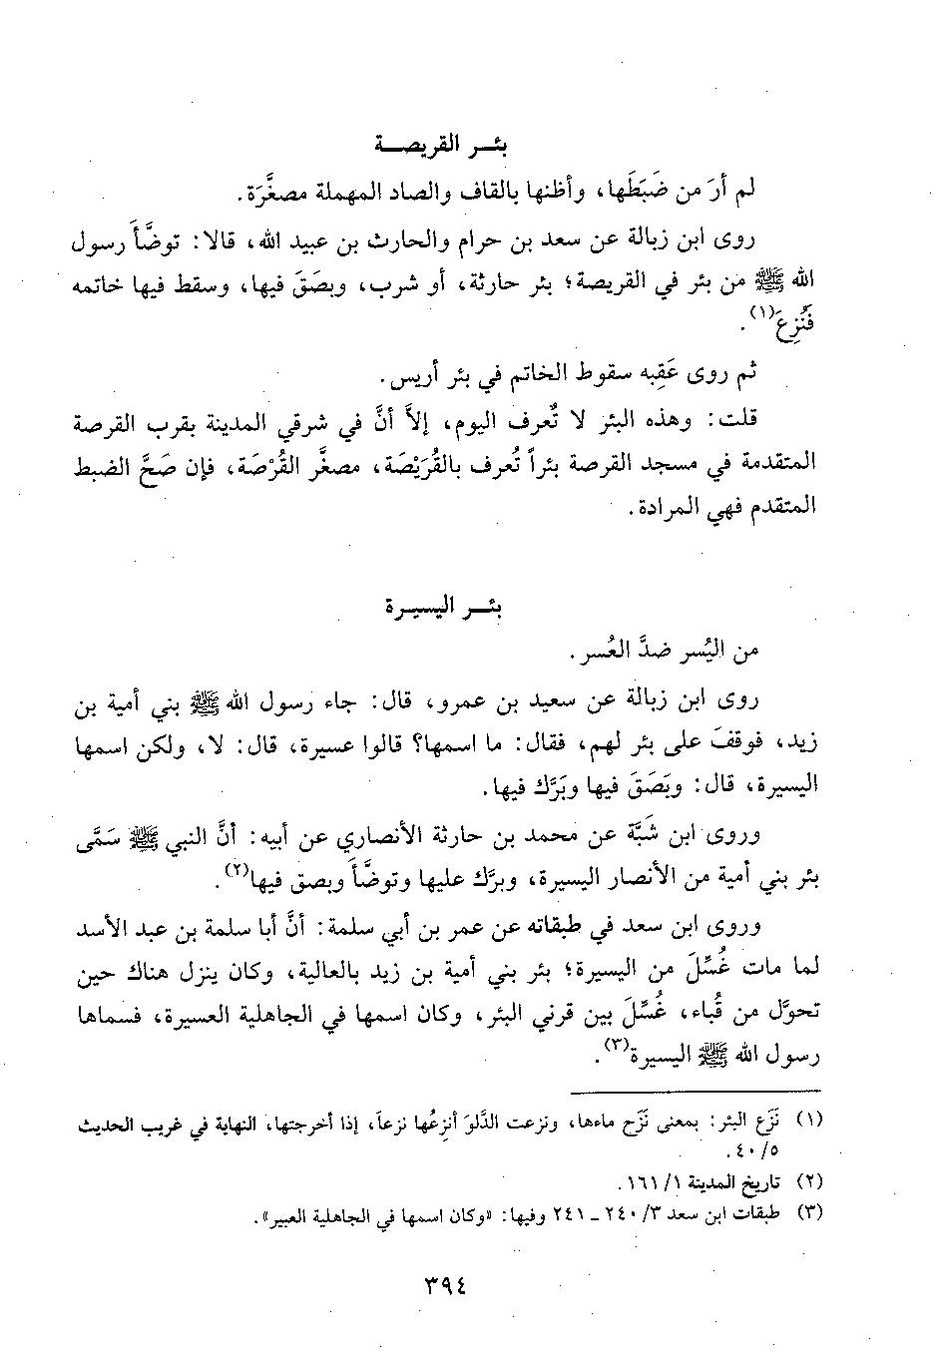 بئر القريصة
لم أرَ من ضَبَطَها، وأظنها بالقاف والصاد المهملة مصغَّرَة.
روى ابن زبالة عن سعد بن حرام والحارث بن عبيد الله، قالا: توضَّأَ رسول
الله ﷺ من بئر في القريصة؛ بئر حارثة، أو شرب، وبصَقَ فيها، وسقط فيها خاتمه
فَنُزِعَ(١).
ثم روى عَقِبه سقوط الخاتم في بئر أريس.
قلت: وهذه البئر لا تُعرف اليوم، إلاَّ أنَّ في شرقي المدينة بقرب القرصة
المتقدمة في مسجد القرصة بئراً تُعرف بالقُرَيْصَة، مصغَّر القُرْصَة، فإن صَحَّ الضبط
المتقدم فهي المرادة.
بئر اليسيرة
من اليُسر ضدَّ العُسر.
روى ابن زبالة عن سعيد بن عمرو، قال: جاء رسول الله ﷺ بني أمية بن
زيد، فوقفَ على بئر لهم، فقال: ما اسمها؟ قالوا عسيرة، قال: لا، ولكن اسمها
اليسيرة، قال: وبَصَقَ فيها وبَرَّك فيها.
وروى ابن شَبَّة عن محمد بن حارثة الأنصاري عن أبيه: أنَّ النبي ﷺ سَمَّى
بئر بني أمية من الأنصار اليسيرة، وبرَّك عليها وتوضَّأَ وبصق فيها(٢).
وروى ابن سعد في طبقاته عن عمر بن أبي سلمة: أنَّ أبا سلمة بن عبد الأسد
لما مات غُسِّلَ من اليسيرة؛ بئر بني أمية بن زيد بالعالية، وكان ينزل هناك حين
تحوَّل من قُباء، غُسِّلَ بين قرني البئر، وكان اسمها في الجاهلية العسيرة، فسماها
رسول الله ﷺ اليسيرة(٣).
(١) نَزَع البئر: بمعنى نَزَح ماءها، ونزعت الدَّلوَ أنزِعُها نزعاً، إذا أخرجتها، النهاية في غريب الحديث
٤٠/٥.
(٢) تاريخ المدينة ١٦١/١.
(٣) طبقات ابن سعد ٢٤٠/٣ ـ ٢٤١ وفيها: «وكان اسمها في الجاهلية العبير».
٣٩٤